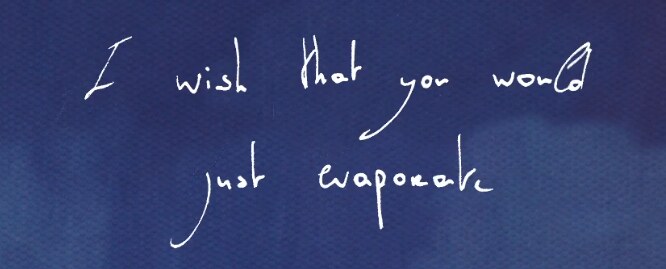 I wish that you would
just evaporate